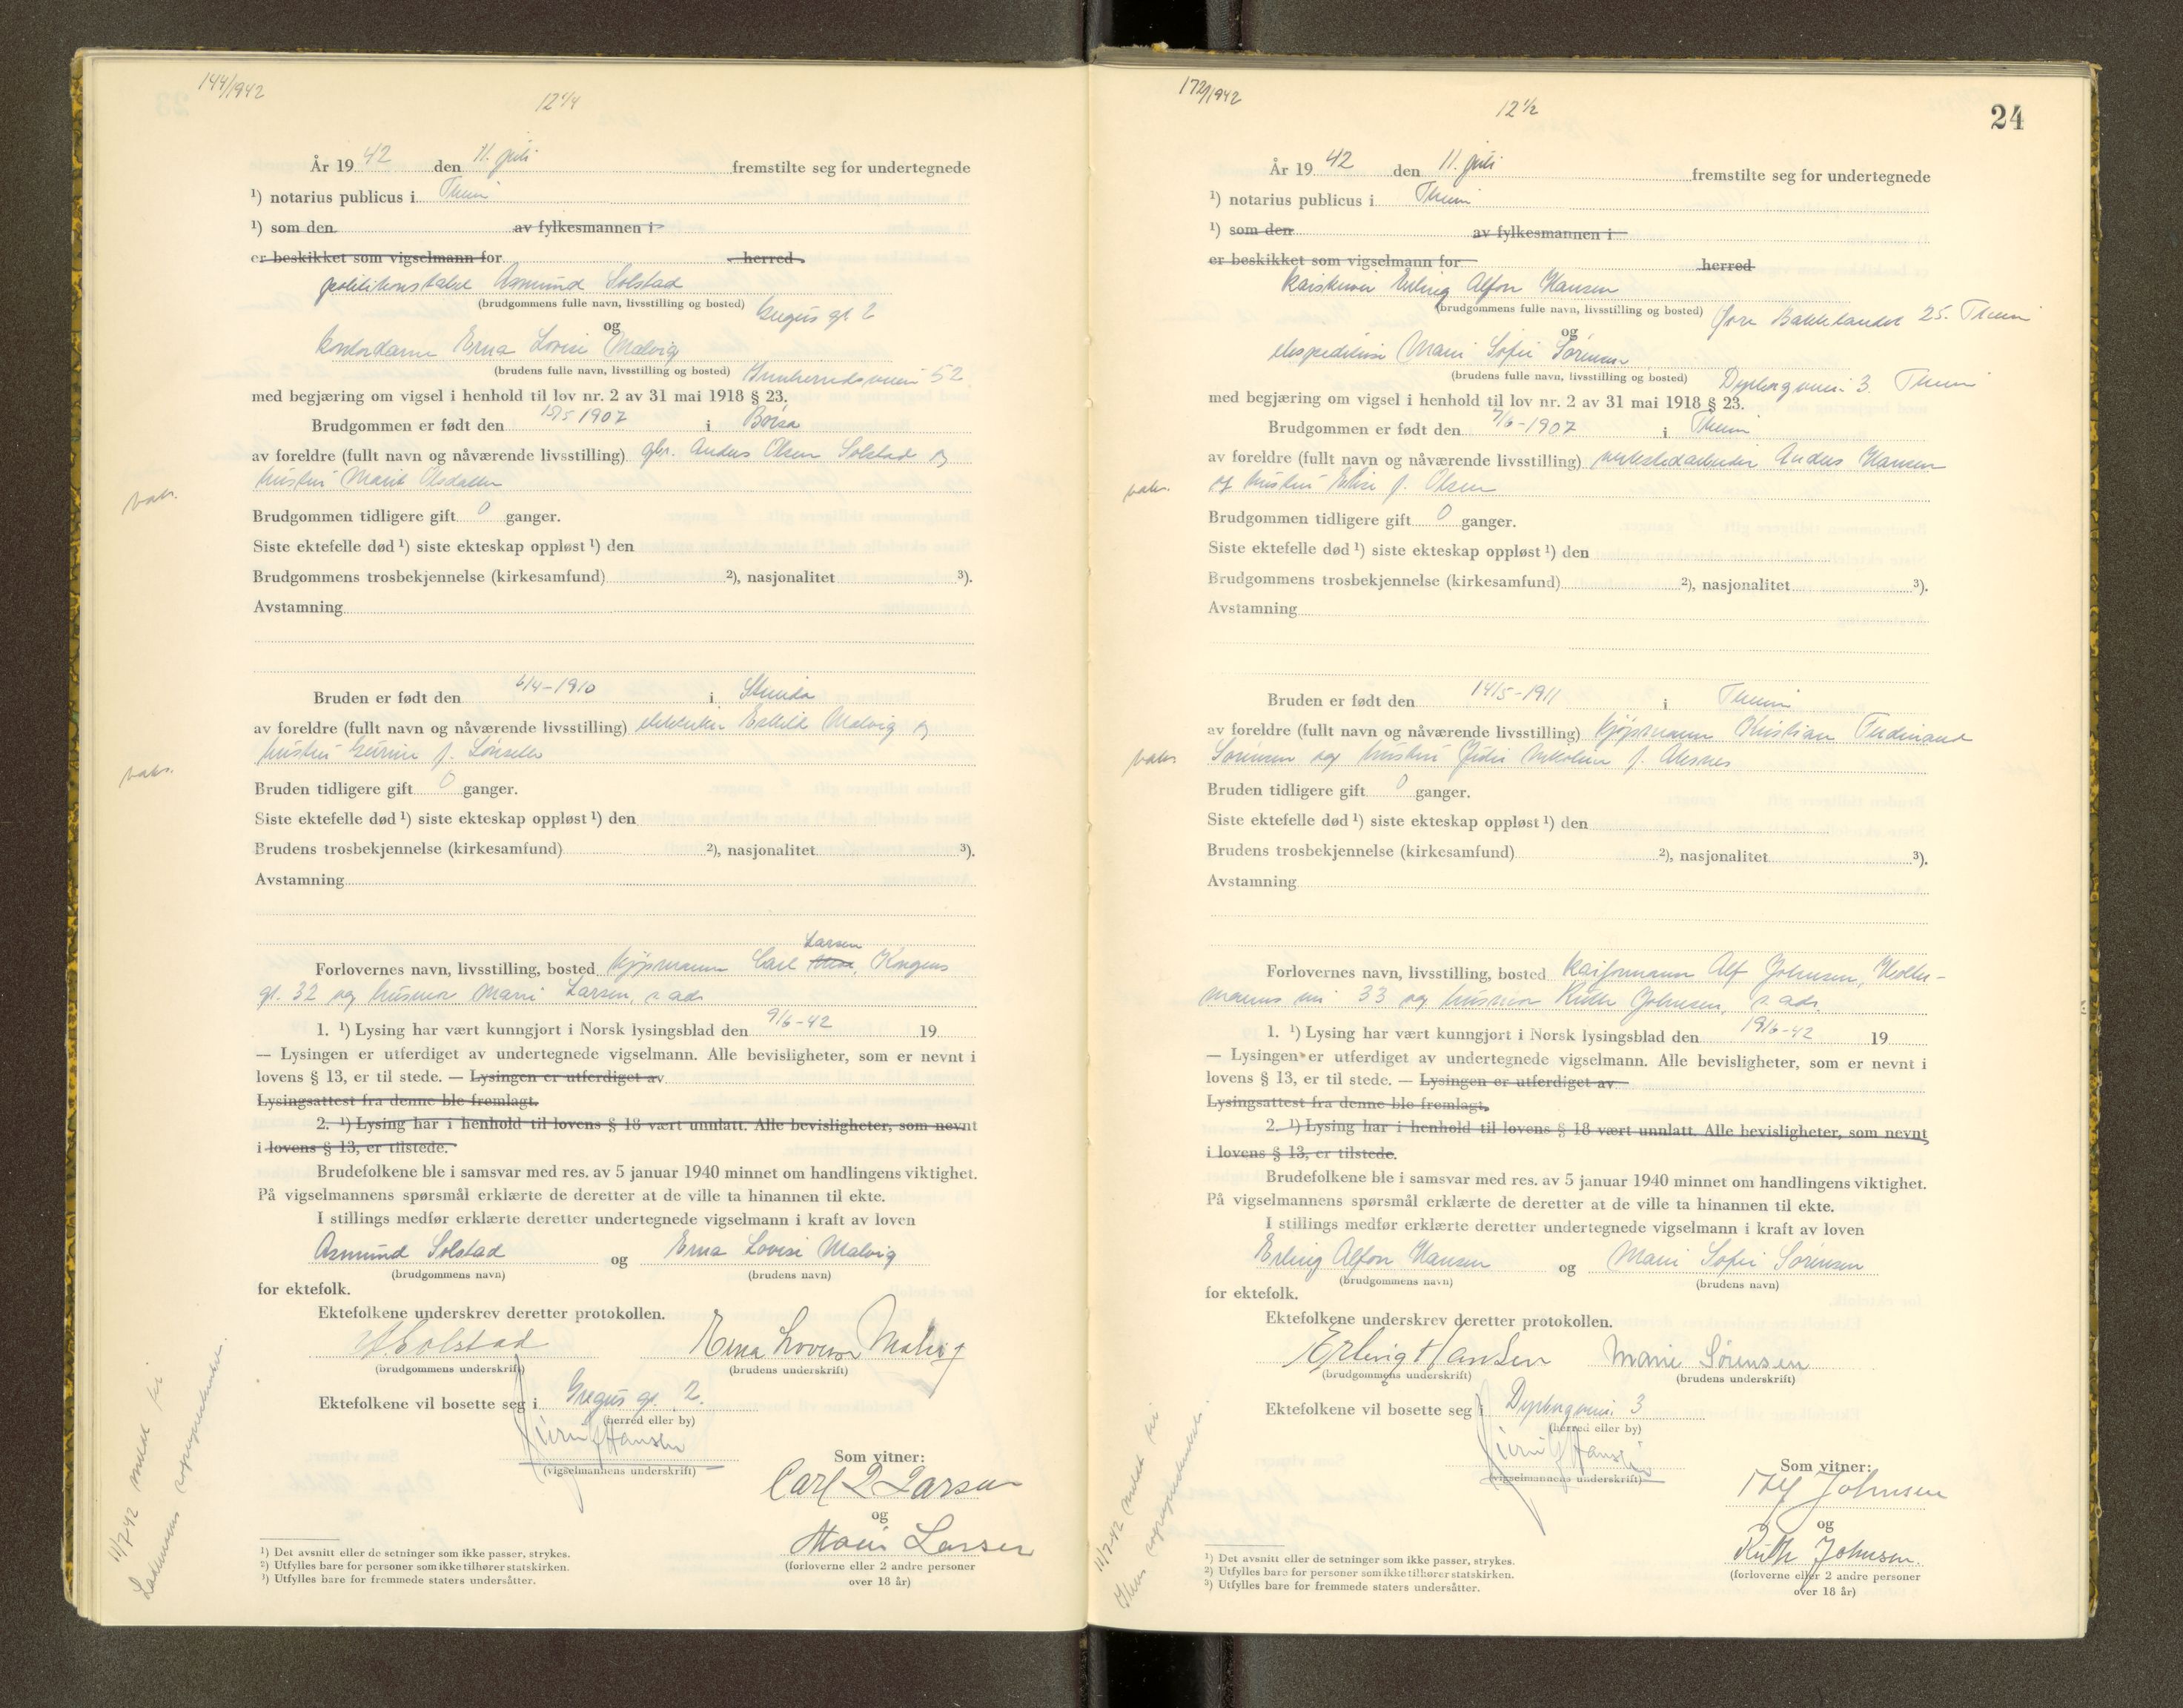 144/1942
12 1/4
År 19 42 den 11. juli fremstilte seg for undertegnede
¹) notarius publicus i Thm
¹) som den av fylkesmannen i
er beskikket som vigselmann for herred.
politikonstabel Asmund Solstad
(brudgommens fulle navn, livsstilling og bosted) Gregus gt 2
og
kontordame Erna Lovise Malvig
(brudens fulle navn, livsstilling og bosted) Innherredsveien 52
med begjæring om vigsel i henhold til lov nr. 2 av 31 mai 1918 § 23.
Brudgommen er født den 15/5 1907 i Børsa
av foreldre (fullt navn og nåværende livsstilling) gbr. Anders Olsen Solstad og
hustru Marit Olsdatter
vaks.
Brudgommen tidligere gift 0 ganger.
Siste ektefelle død ¹) siste ekteskap oppløst ¹) den
Brudgommens trosbekjennelse (kirkesamfund) ²), nasjonalitet ³).
Avstamning
Bruden er født den 6/4-1910 i Strinda
av foreldre (fullt navn og nåværende livsstilling) elektriker Eskild Malvig og
hustru Gurine f.
vaks.
Bruden tidligere gift 0 ganger.
Siste ektefelle død ¹) siste ekteskap oppløst ¹) den
Brudens trosbekjennelse (kirkesamfund) ²), nasjonalitet ³).
Avstamning
Larsen
Forlovernes navn, livsstilling, bosted kjøpmann Carl , Kongens
gt. 32 og husmor Marie Larsen, s. ads.
1. ¹) Lysing har vært kunngjort i Norsk lysingsblad den 9/6-42 19
— Lysingen er utferdiget av undertegnede vigselmann. Alle bevisligheter, som er nevnt i
lovens § 13, er til stede. — Lysingen er utferdiget av
Lysingsattest fra denne ble fremlagt.
2. ¹) Lysing har i henhold til lovens § 18 vært unnlatt. Alle bevisligheter, som nevnt
i lovens § 13, er tilstede.
Brudefolkene ble i samsvar med res. av 5 januar 1940 minnet om handlingens viktighet.
På vigselmannens spørsmål erklærte de deretter at de ville ta hinannen til ekte.
I stillings medfør erklærte deretter undertegnede vigselmann i kraft av loven
Asmund Solstad og Erna Lovise Malvig
(brudgommens navn) (brudens navn)
for ektefolk.
Ektefolkene underskrev deretter protokollen.
A Solstad Erna Lovise Malvig
(brudgommens underskrift) (brudens underskrift)
Ektefolkene vil bosette seg i Gregus gt. 2.
(herred eller by)
Hansen
(vigselmannens underskrift)
Som vitner:
Carl L Larsen
og
Marie Larsen
(forloverne eller 2 andre personer
over 18 år)
11/7-42 meldt til
Lademoens sogneprestembete.
¹) Det avsnitt eller de setninger som ikke passer, strykes.
²) Utfylles bare for personer som ikke tilhører statskirken.
³) Utfylles bare for fremmede staters undersåtter.
172/1942
12 1/2
24
År 19 42 den 11. juli fremstilte seg for undertegnede
¹) notarius publicus i Thm
¹) som den av fylkesmannen i
er beskikket som vigselmann for herred
Erling Alfon Hansen
(brudgommens fulle navn, livsstilling og bosted) Øvre Bakklandet 25. Thm
og
ekspeditrise Marie Sofie Sørensen
(brudens fulle navn, livsstilling og bosted) Dyrborgveien 3. Thm
med begjæring om vigsel i henhold til lov nr. 2 av 31 mai 1918 § 23.
Brudgommen er født den 7/6-1907 i Thm
av foreldre (fullt navn og nåværende livsstilling) verkstedarbeider Anders Hansen
og hustru Elise f. Olsen
vaks.
Brudgommen tidligere gift 0 ganger.
Siste ektefelle død ¹) siste ekteskap oppløst ¹) den
Brudgommens trosbekjennelse (kirkesamfund) ²), nasjonalitet ³).
Avstamning
Bruden er født den 14/5-1911 i Thm
av foreldre (fullt navn og nåværende livsstilling) kjøpmann Kristian Ferdinand
Sørensen og hustru Nikoline f. Alesnes
vaks.
Bruden tidligere gift 0 ganger.
Siste ektefelle død ¹) siste ekteskap oppløst ¹) den
Brudens trosbekjennelse (kirkesamfund) ²), nasjonalitet ³).
Avstamning
Forlovernes navn, livsstilling, bosted kaiformann Alf Johnsen,
33 og husmor Ruth Johnsen, s. ads.
1. ¹) Lysing har vært kunngjort i Norsk lysingsblad den 19/6-42 19
— Lysingen er utferdiget av undertegnede vigselmann. Alle bevisligheter, som er nevnt i
lovens § 13, er til stede. — Lysingen er utferdiget av
Lysingsattest fra denne ble fremlagt.
2. ¹) Lysing har i henhold til lovens § 18 vært unnlatt. Alle bevisligheter, som nevnt
i lovens § 13, er tilstede.
Brudefolkene ble i samsvar med res. av 5 januar 1940 minnet om handlingens viktighet.
På vigselmannens spørsmål erklærte de deretter at de ville ta hinannen til ekte.
I stillings medfør erklærte deretter undertegnede vigselmann i kraft av loven
Erling Alfon Hansen og Marie Sofie Sørensen
(brudgommens navn) (brudens navn)
for ektefolk.
Ektefolkene underskrev deretter protokollen.
Erling Hansen Marie Sørensen
(brudgommens underskrift) (brudens underskrift)
Ektefolkene vil bosette seg i Dyrborgveien 3
(herred eller by)
Hansen
(vigselmannens underskrift)
Som vitner:
Alf Johnsen
og
Ruth Johnsen.
(forloverne eller 2 andre personer
over 18 år)
11/7-42 meldt til
Ilens sogneprestembete.
¹) Det avsnitt eller de setninger som ikke passer, strykes.
²) Utfylles bare for personer som ikke tilhører statskirken.
³) Utfylles bare for fremmede staters undersåtter.